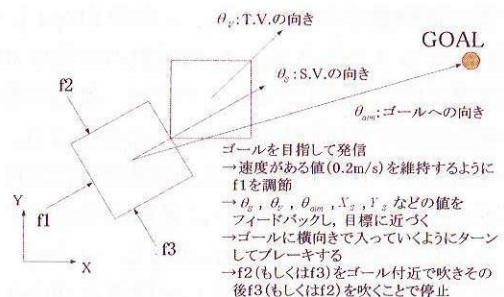 θv：T.V.の向き
GOAL
θs：S.V.の向き
f2
θaim：ゴールへの向き
ゴールを目指して発信
→速度がある値(0.2m/s)を維持するように
f1を調節
→θs , θv , θaim , Xs , Ys などの値を
フィードバックし, 目標に近づく
→ゴールに横向きで入っていくようにターン
してブレーキする
→f2(もしくはf3)をゴール付近で吹きその
後f3(もしくはf2)を吹くことで停止
Y
f1
X
f3